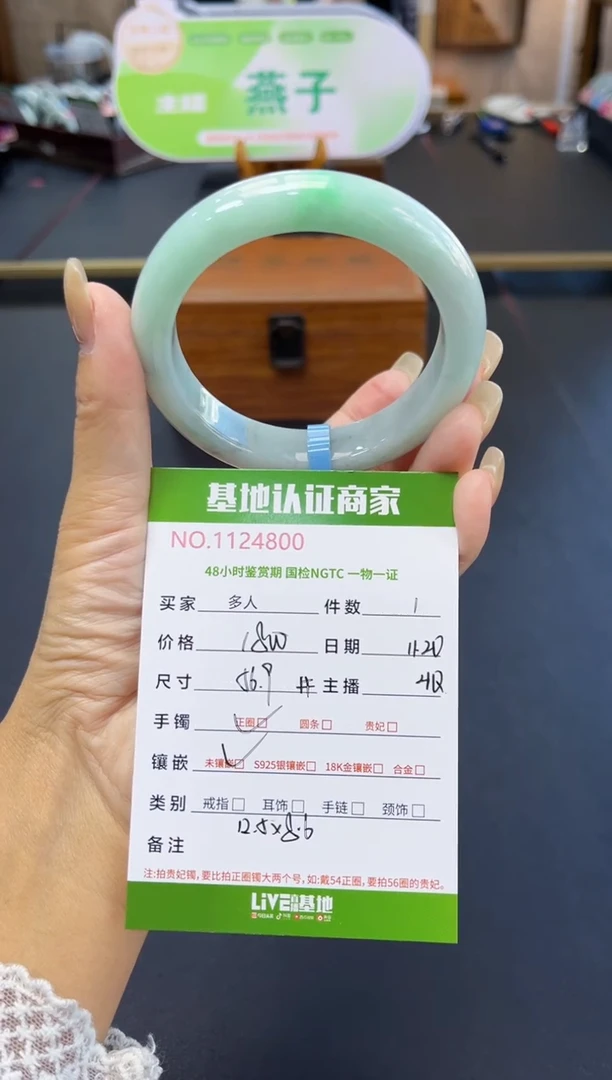 燕子
基地认证商家
NO.1124800
48小时鉴赏期 国检NGTC 一物一证
买家 多人 件数 1
价格 1800 日期 11.20
尺寸 56.9 主播
手镯 正圈□ 圆条□ 贵妃□
镶嵌 未镶嵌□ S925银镶嵌□ 18K金镶嵌□ 合金□
类别 戒指□ 耳饰□ 手链□ 颈饰□
12.5×8.6
备注
注:拍贵妃镯,要比拍正圈镯大两个号,如:戴54正圈,要拍56圈的贵妃。
LIVE直播基地